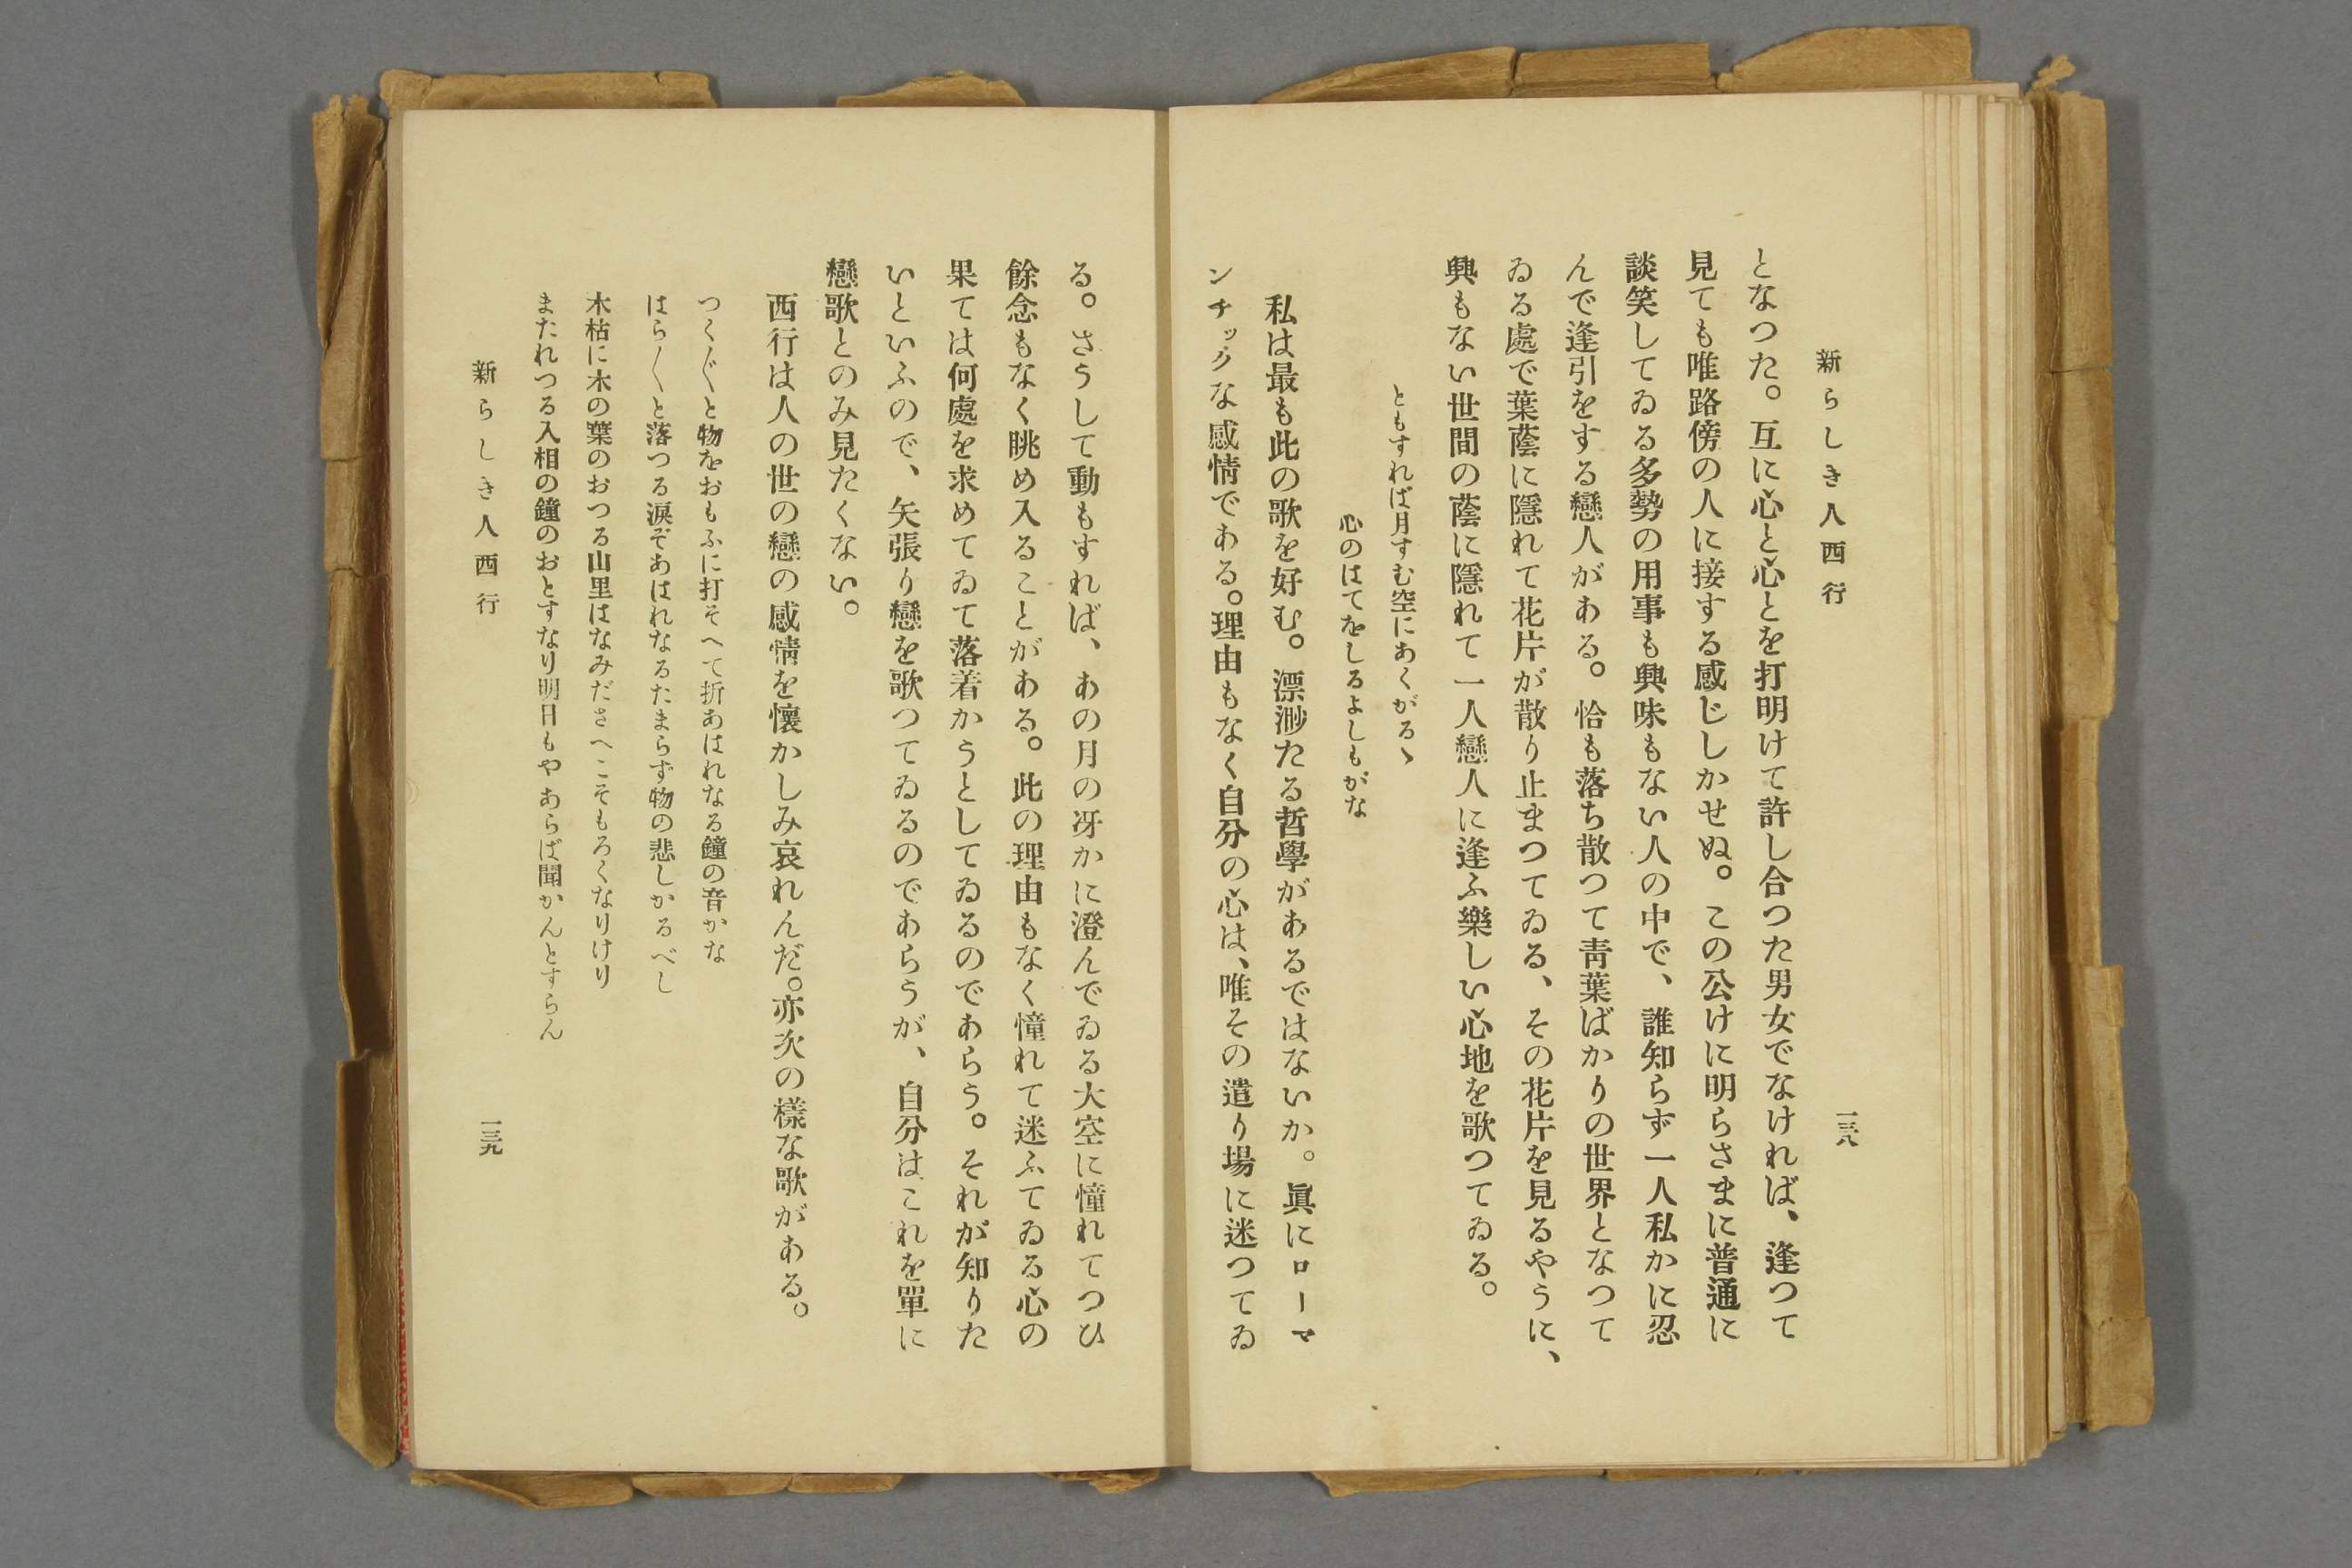 新らしき人西行
一三八
となつた。互に心と心とを打明けて許し合つた男女でなければ、逢つて
見ても唯路傍の人に接する感じしかせぬ。この公けに明らさまに普通に
談笑してゐる多勢の用事も興味もない人の中で、誰知らず一人私かに忍
んで逢引をする戀人がある。恰も落ち散つて靑葉ばかりの世界となつて
ゐる處で葉蔭に隱れて花片が散り止まつてゐる、その花片を見るやうに、
興もない世間の蔭に隱れて一人戀人に逢ふ樂しい心地を歌つてゐる。
ともすれば月すむ空にあくがるヽ
心のはてをしるよしもがな
私は最も此の歌を好む。漂渺たる哲學があるではないか。眞にローマ
ンチックな感情である。理由もなく自分の心は、唯その遣り場に迷つてゐ
る。さうして動もすれば、あの月の冴かに澄んでゐる大空に憧れてつひ
餘念もなく眺め入ることがある。此の理由もなく憧れて迷ふてゐる心の
果ては何處を求めてゐて落着かうとしてゐるのであらう。それが知りた
いといふので、矢張り戀を歌つてゐるのであらうが、自分はこれを單に
戀歌とのみ見たくない。
西行は人の世の戀の感情を懷かしみ哀れんだ。亦次の樣な歌がある。
つく〴〵と物をおもふに打そへて折あはれなる鐘の音かな
はら〳〵と落つる涙ぞあはれなるたまらず物の悲しかるべし
木枯に木の葉のおつる山里はなみださへこそもろくなりけり
またれつる入相の鐘のおとすなり明日もやあらば聞かんとすらん
新らしき人西行
一三九